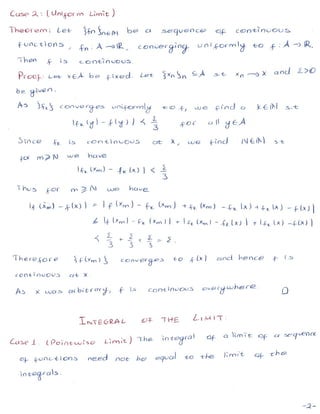 Case 2: (Uniform Limit)
Theorem: Let {fn}n∈ℕ be a sequence of continuous
functions, fn: A → ℝ, converging uniformly to f: A → ℝ.
Then f is continuous.
Proof: Let x∈A be fixed. Let {xn}n ⊆ A s.t xn → x and ε>0
be given.
As {fn} converges uniformly to f, we find a k∈ℕ s.t
|fk(y) - f(y)| < ε/3 for all y∈A
Since fk is continuous at x, we find N∈ℕ s.t
for m ≥ N we have
|fk(xm) - fk(x)| < ε/3
Thus for m ≥ N we have
|f(xm) - f(x)| = |f(xm) - fk(xm) + fk(xm) - fk(x) + fk(x) - f(x)|
≤ |f(xm) - fk(xm)| + |fk(xm) - fk(x)| + |fk(x) - f(x)|
< ε/3 + ε/3 + ε/3 = ε.
Therefore {f(xm)} converges to f(x) and hence f is
continuous at x
As x was arbitrary, f is continuous everywhere. □
INTEGRAL OF THE LIMIT:
Case 1. (Pointwise Limit) The integral of a limit of a sequence
of functions need not be equal to the limit of the
integrals.
-2-